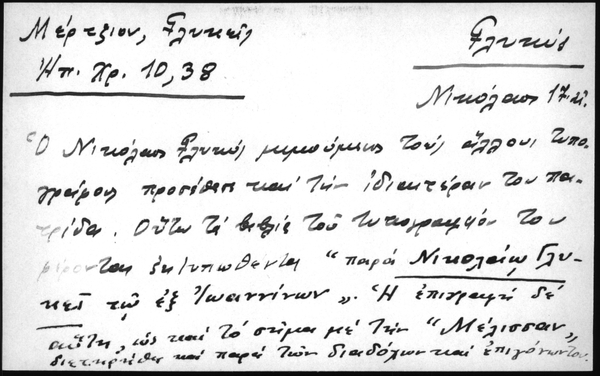 Μέρτζιον, Γλυκεῖς
Ἠπ. Χρ. 10, 38
Γλυκύς
Νικόλαος 17. αἰ.
Ὁ Νικόλαος Γλυκύς μιμούμενος τούς ἄλλους τυπο-
γράφους προσέθεσε καί τήν ἰδιαιτέραν του πα-
τρίδα. Οὕτω τά βιβλία τοῦ τυπογραφείου του
φέρονται ἐκτυπωθέντα "παρά Νικολάῳ Γλυ-
κεῖ τῷ ἐξ Ἰωαννίνων". Ἡ ἐπιγραφή δέ
αὕτη, ὡς καί τό σῆμα μέ τήν "Μέλισσαν",
διετηρήθη καί παρά τῶν διαδόχων καί ἐπιγόνων του.